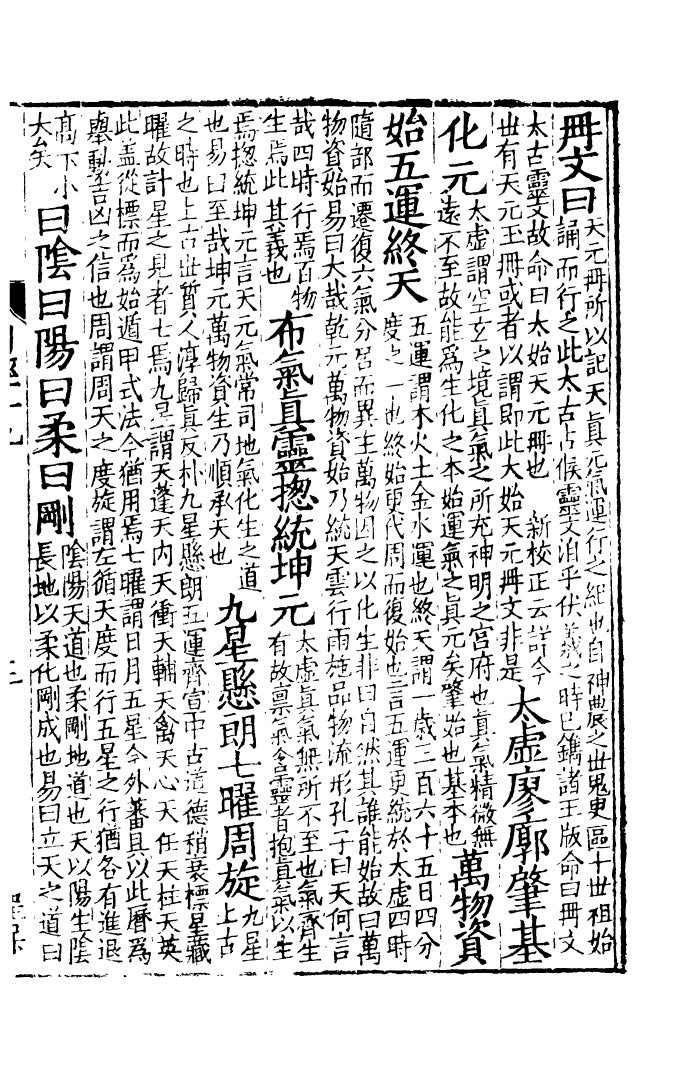 冊文曰天元冊所以記天眞元氣運行之紀也自神農之世鬼臾區十世祖始
誦而行之此太古占候靈文洎乎伏羲之時已鐫諸玉版命曰冊文
太古靈文故命曰太始天元冊也　新校正云詳今
世有天元玉冊或者以謂即此太始天元冊文非是
太虛廖廓肇基
化元
太虛謂空玄之境眞氣之所充神明之宮府也眞氣精微無
遠不至故能爲生化之本始運氣之眞元矣肇始也基本也
萬物資
始五運終天
五運謂木火土金水運也終天謂一歲三百六十五日四分
度之一也終始更代周而復始也言五運更統於太虛四時
隨部而遷復六氣分居而異主萬物因之以化生非曰自然其誰能始故曰萬
物資始易曰大哉乾元萬物資始乃統天雲行雨施品物流形孔子曰天何言
哉四時行焉百物
生焉此其義也
布氣眞靈揔統坤元
太虛眞氣無所不至也氣齊生
有故禀氣含靈者抱眞氣以生
焉揔統坤元言天元氣常司地氣化生之道
也易曰至哉坤元萬物資生乃順承天也
九星懸朗七曜周旋
九星
上古
之時也上古世質人淳歸眞反朴九星懸朗五運齊宣中古道德稍衰標星藏
曜故計星之見者七焉九星謂天蓬天內天衝天輔天禽天心天任天柱天英
此蓋從標而爲始遁甲式法今猶用焉七曜謂日月五星今外蕃具以此曆爲
舉動吉凶之信也周謂周天之度旋謂左循天度而行五星之行猶各有進退
高下小
大矣
曰陰曰陽曰柔曰剛
陰陽天道也柔剛地道也天以陽生陰
長地以柔化剛成也易曰立天之道曰